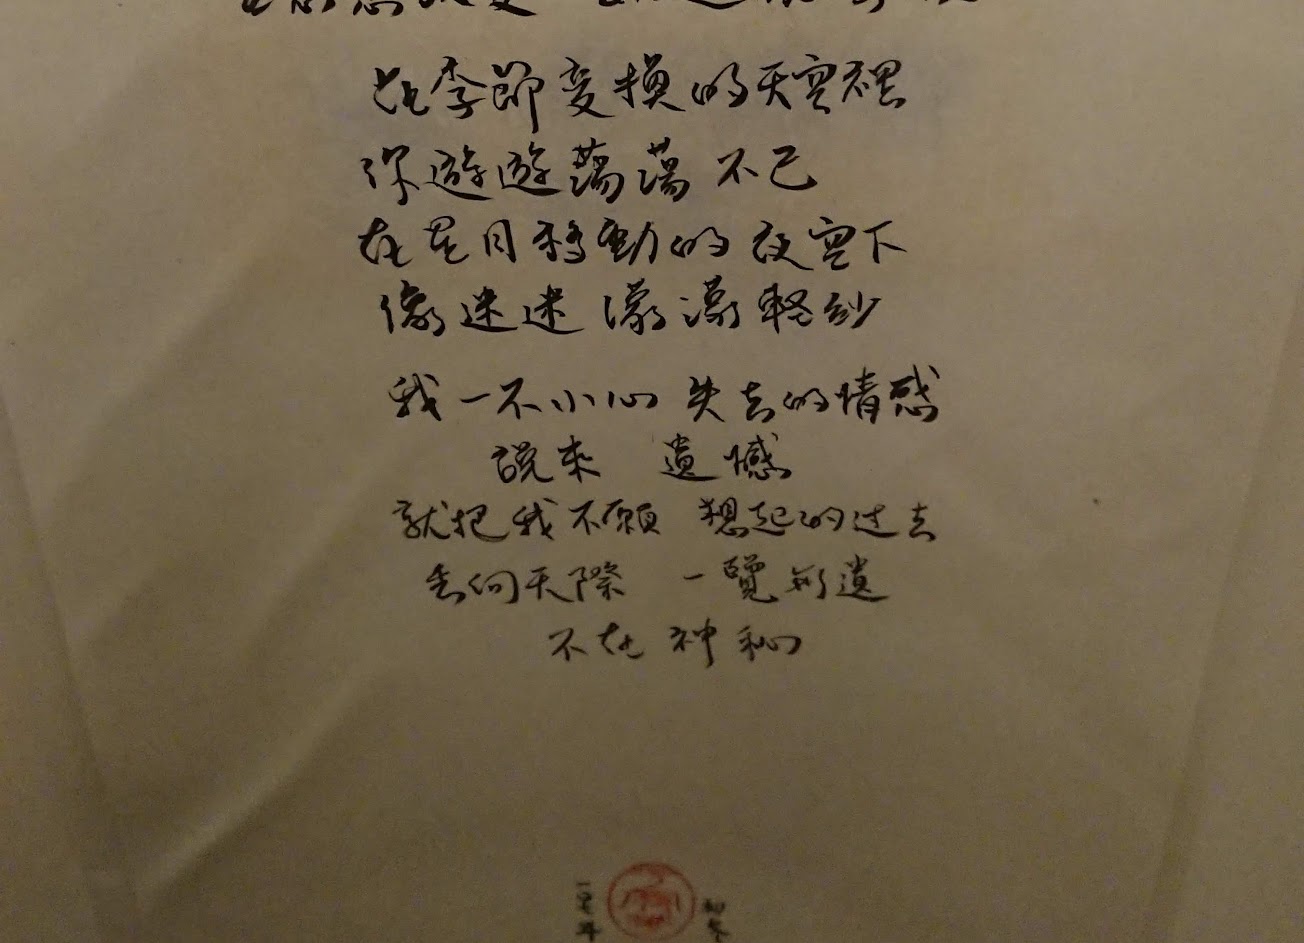 在季節变換的天空裡
你遊遊蕩蕩 不已
在星月移動的夜空下
像迷迷濛濛輕紗
我一不小心 失去的情感
說來 遺憾
就把我不願 想起的过去
丟向天際 一覽無遺
不在 神秘